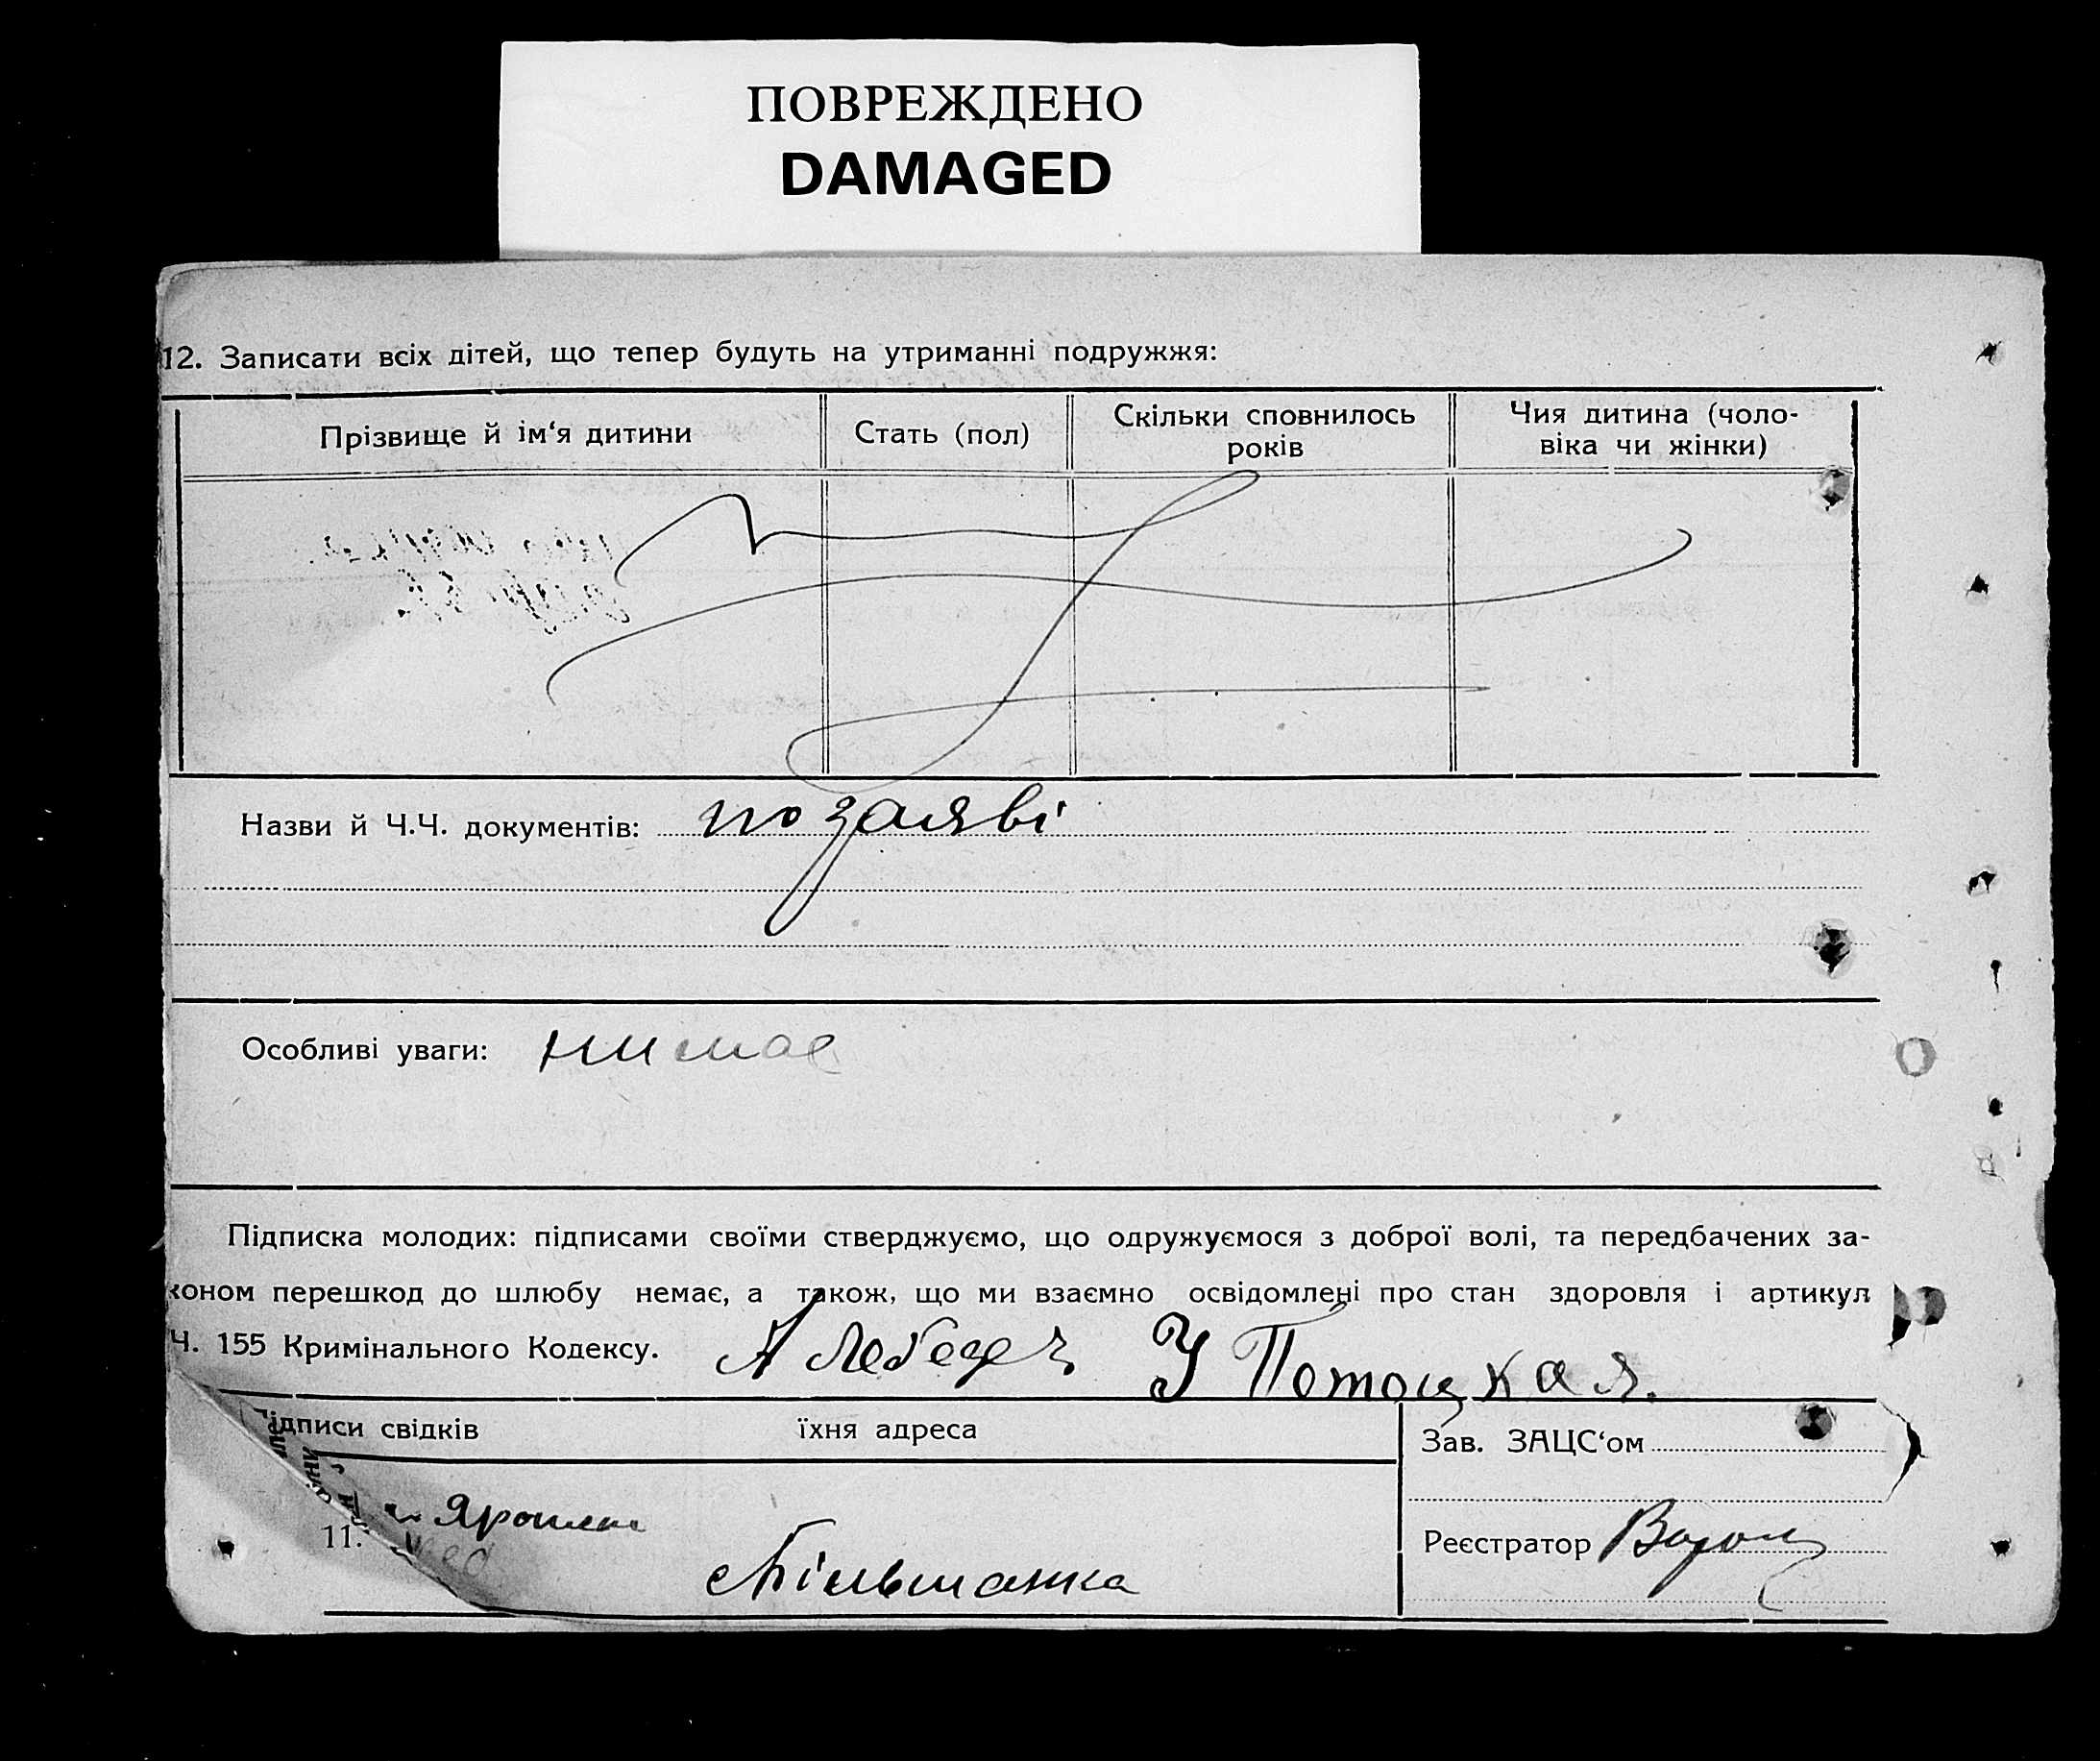 ПОВРЕЖДЕНО
DAMAGED
12. Записати всіх дітей, що тепер будуть на утриманні подружжя:
Прізвище й ім‘я дитини
Стать (пол)
Скільки сповнилось
років
Чия дитина (чоло-
віка чи жінки)
Назви й Ч.Ч. документів: по заяві
Особливі уваги: нимае
Підписка молодих: підписами своїми стверджуємо, що одружуємося з доброї волі, та передбачених за-
коном перешкод до шлюбу немає, а також, що ми взаємно освідомлені про стан здоровля і артикул
Ч. 155 Кримінального Кодексу. А Лебедь У Потоцкая.
Підписи свідків їхня адреса
Зав. ЗАЦС‘ом
11.
Вільшанка
Реєстратор